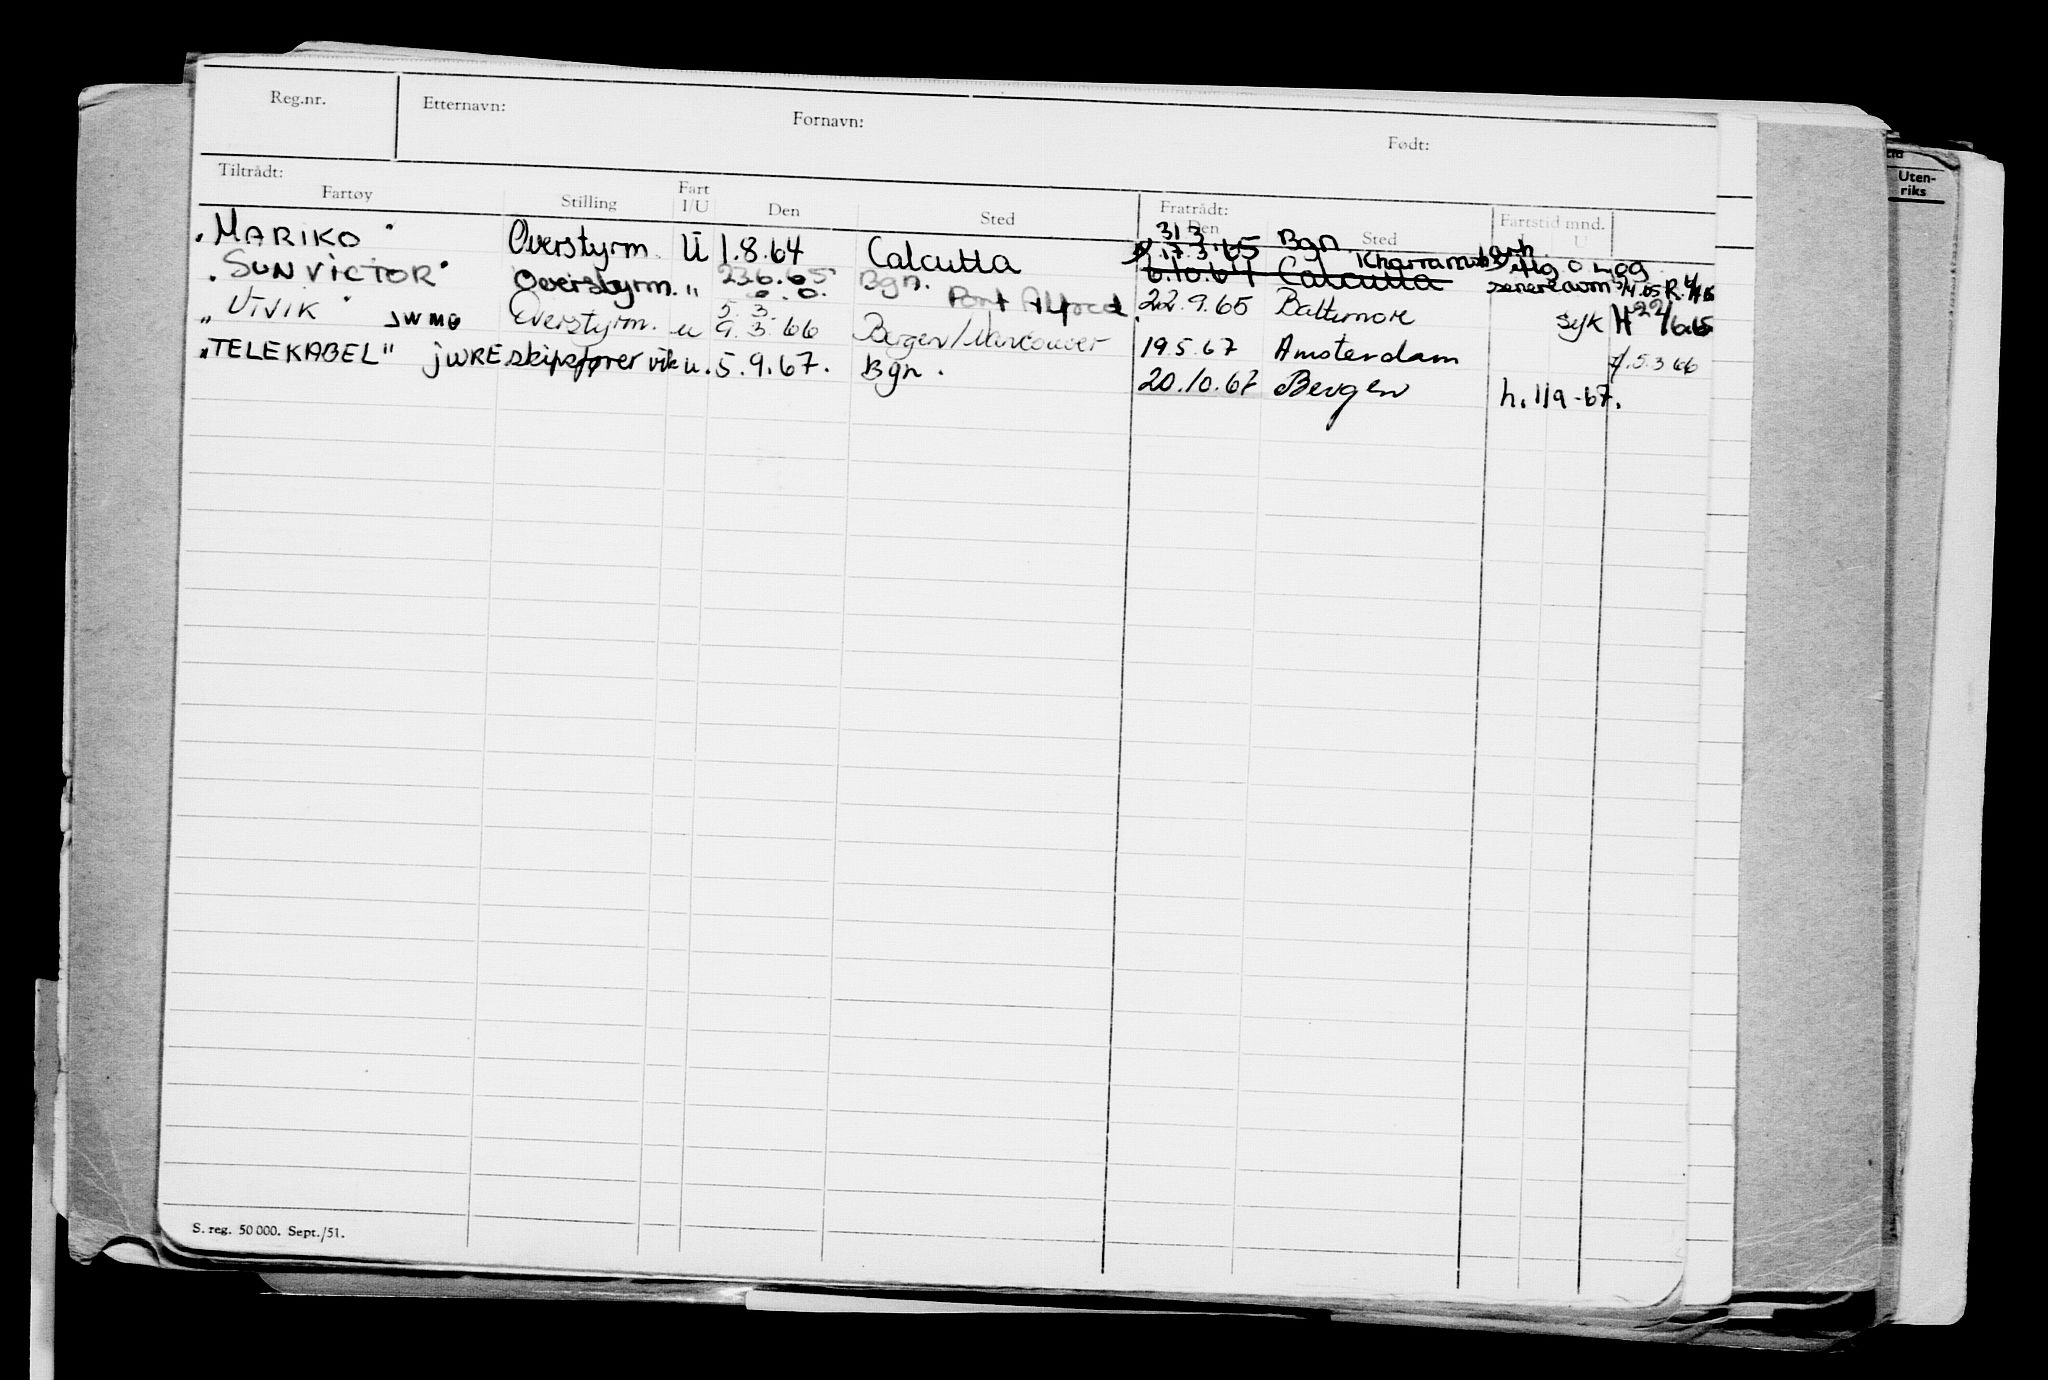 Reg.nr. Etternavn: Fornavn: Født:
Tiltrådt: Fratrådt:
Fartøy Stilling Fart I/U Den Sted Den Sted Fartstid mnd. I U
Uten-
riks
"MARIKO" Overstyrm. U 1.8.64 Calcutta 31 3 17.3.65 Bgn
6.10.64 Calcutta
"SUNVICTOR" Overstyrm. " 23.6.65 Bgn. Port Alfred. 22.9.65 Baltimore syk H 22/6.65
"VIVIK" JWMG Overstyrm. u 5.3. 9.3.66 Bergen/Vancouver 19.5.67 Amsterdam 5.3 66
"TELEKABEL" JWRE skipsfører vik u. 5.9.67. Bgn. 20.10.67 Bergen h. 1/9-67.
S. reg. 50 000. Sept./51.